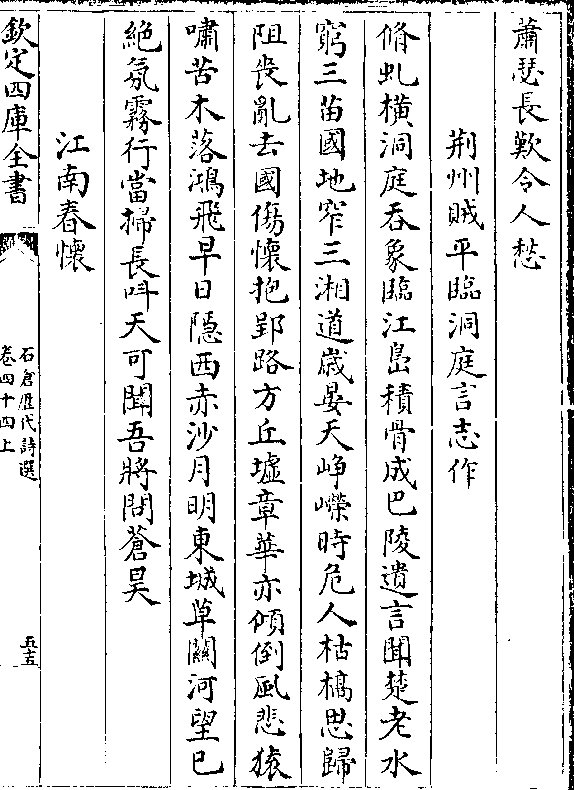 蕭瑟長歎令人愁
荆州賊平臨洞庭言志作
脩虬橫洞庭吞象臨江島積骨成巴陵遺言聞楚老水
窮三苗國地窄三湘道歲晏天崢嶸時危人枯槁思歸
阻喪亂去國傷懷抱郢路方丘墟章華亦傾倒風悲猿
嘯苦木落鴻飛早日隱西赤沙月明東城草關河望已
絶氛霧行當掃長呌天可聞吾將問蒼昊
江南春懷
欽定四庫全書
石倉歴代詩選
卷四十四上
五五